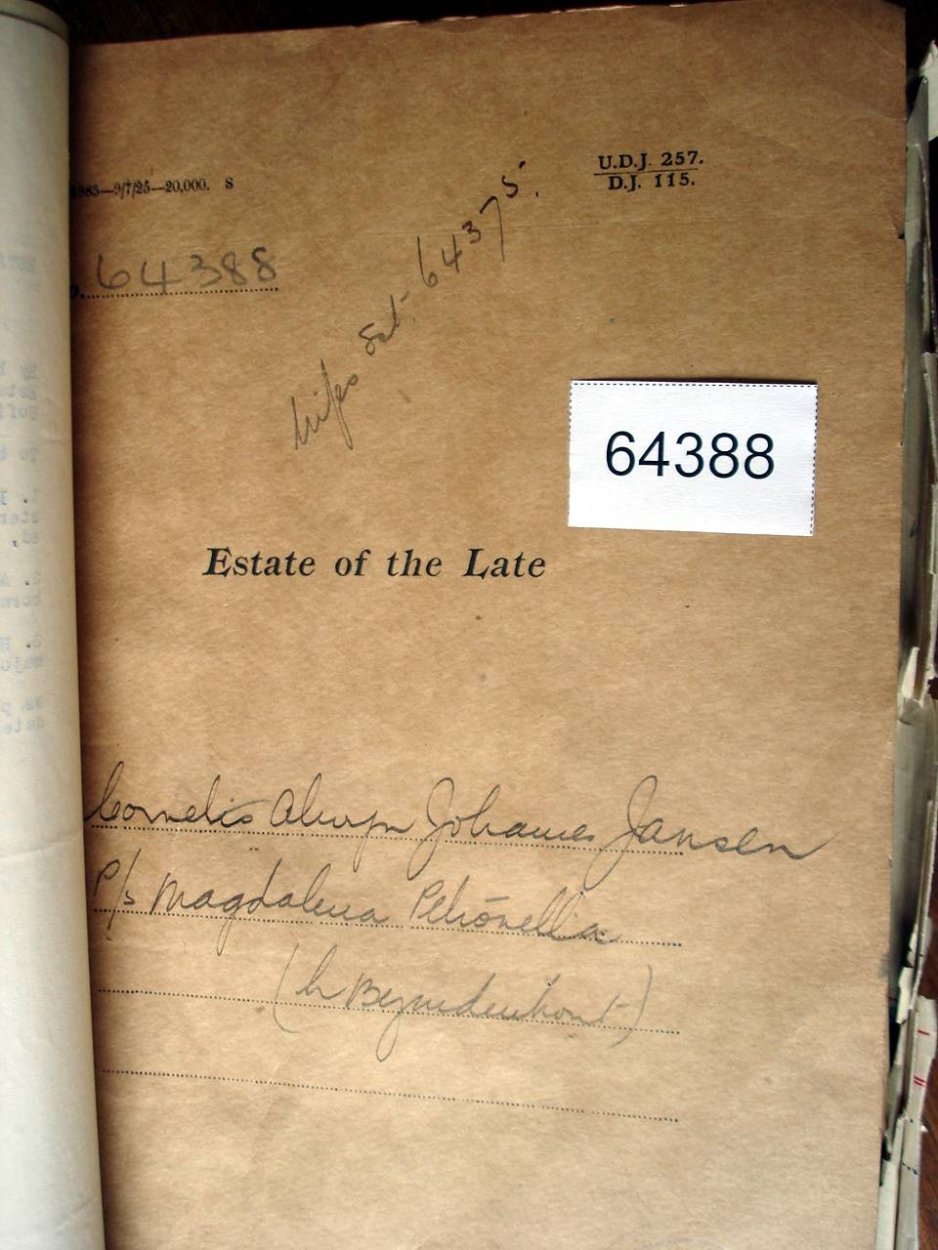 1985—9/7/25—20,000. S
U.D.J. 257.
D.J. 115.
64388
wifes Est. 64375.
64388
Estate of the Late
Cornelis Alwyn Johannes Jansen
P/s Magdalena Petronella
(b Bezuidenhout)